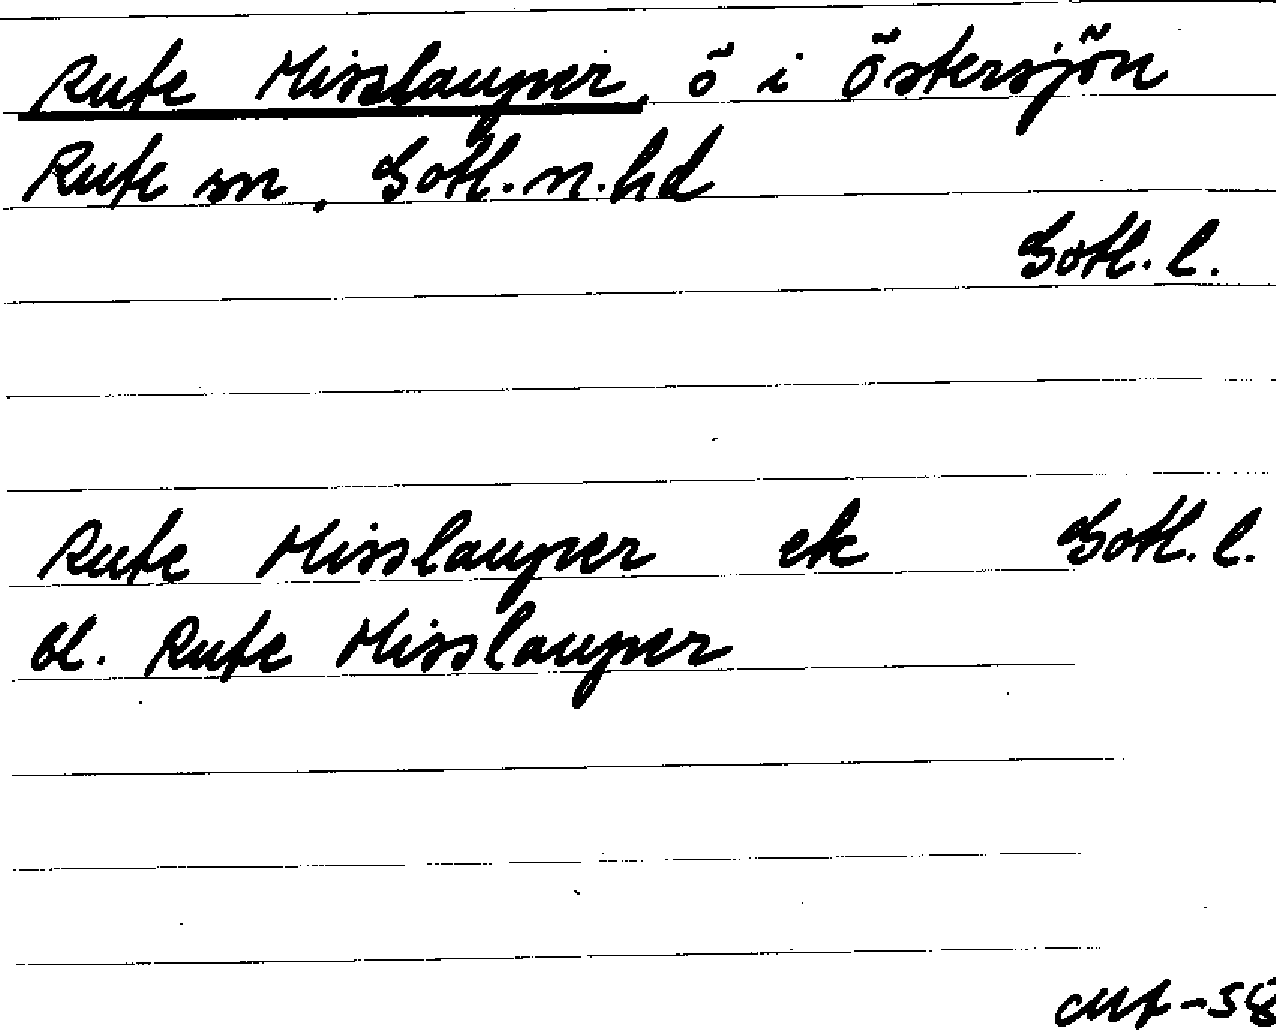 Rute Misslauper, ö i Östersjön
Rute sn, Gotl. n. hd
Gotl. l.
Rute Misslauper ek Gotl. l.
bl. Rute Misslauper
-58